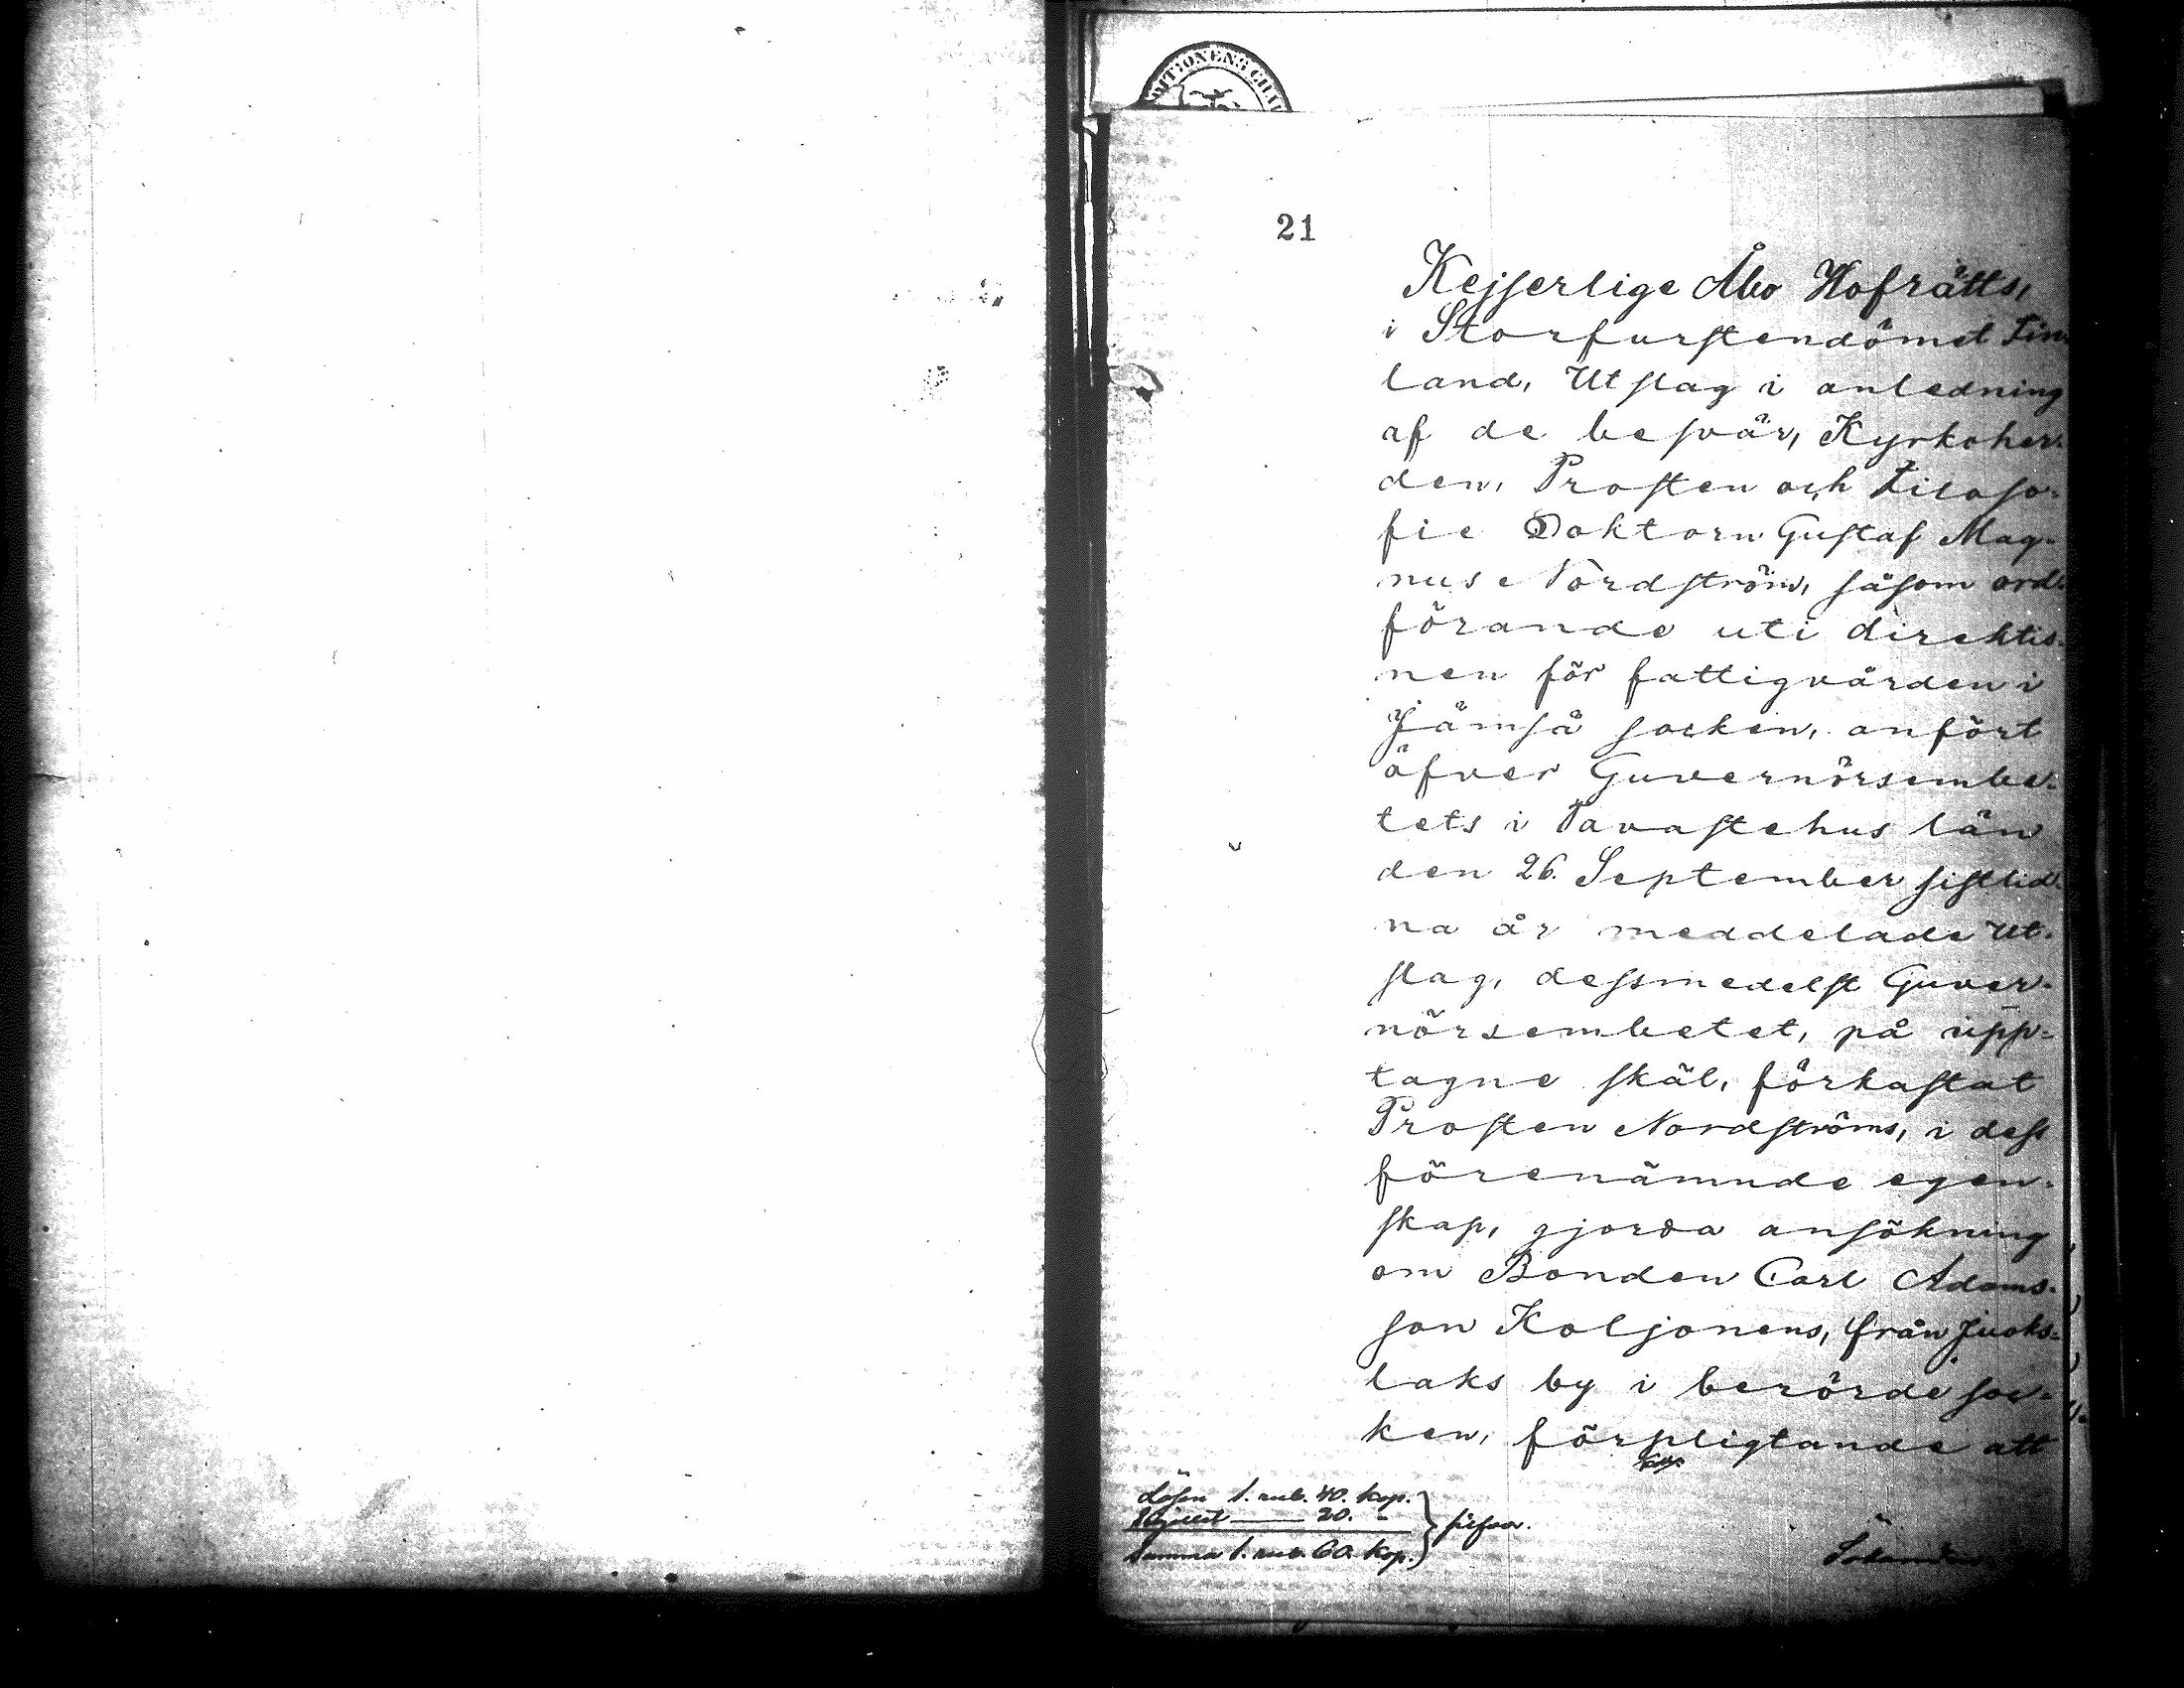 21
Kejserlige Åbo Hofrätts,
i Storfurstendömet Fin-
land, Utslag i anledning
af de besvär, Kyrkoher-
den, Prosten och Filoso-
fie Doktorn Gustaf Mag-
nus Nordström, såsom ord-
förande uti direktio-
nen för fattigvården i
Jämsä socken, anfört
öfver Guvernörsembe-
tets i Tavastehus län
den 26. September sistlid-
na år meddelade Ut-
slag, dessmedelst Guver-
nörsembetet, på upp-
tagne skäl, förkastat
Prosten Nordströms, i dess
förenämnde egen-
skap, gjorda ansökning
om Bonden Carl Adams-
son Koljonens, från Juoks-
laks by i berörde soc-
ken, förpligtande att
Lösen 1. rub. 40. kop.
20. "
Summa 1. rub. 60. kop. } silfver.
Sökanden